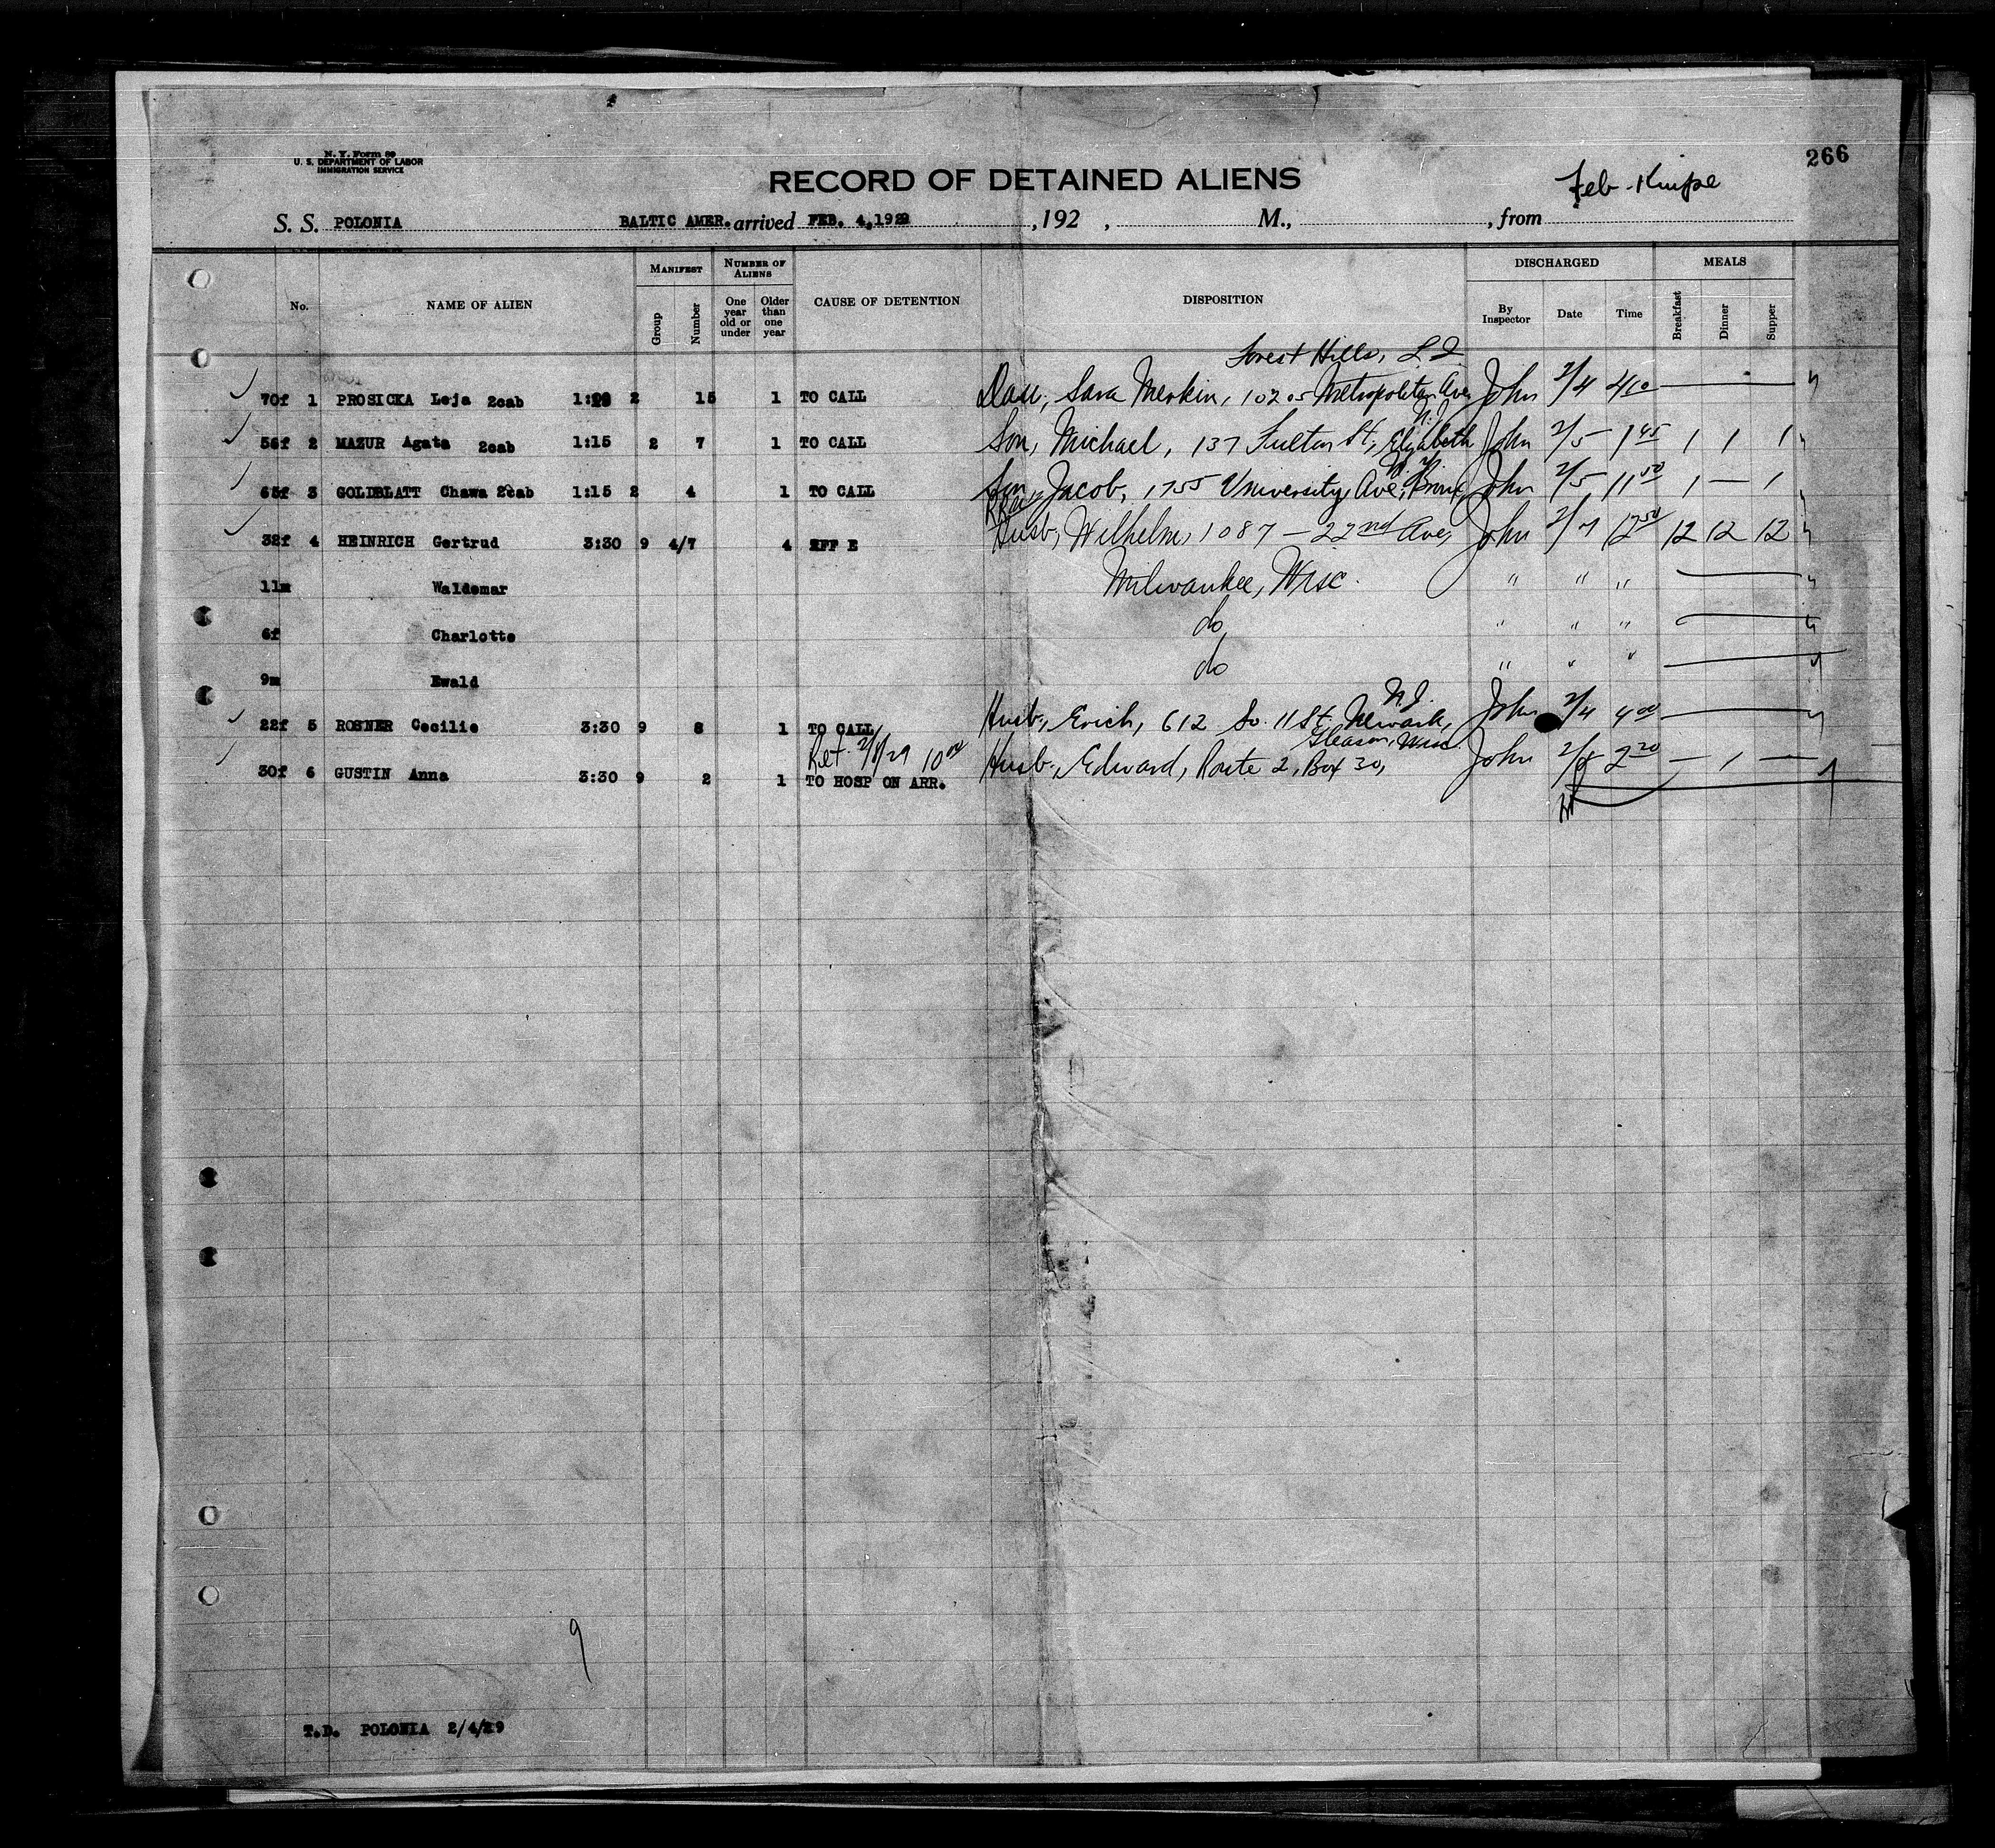 266
N. Y. Form 89
U. S. DEPARTMENT OF LABOR
IMMIGRATION SERVICE
RECORD OF DETAINED ALIENS
S. S. POLONIA BALTIC AMER. arrived FEB. 4, 1929 , 192 , M., , from
No. NAME OF ALIEN MANIFEST Group Number NUMBER OF ALIENS One year old or under Older than one year CAUSE OF DETENTION DISPOSITION DISCHARGED By Inspector Date Time MEALS Breakfast Dinner Supper
Forest Hills, L I
70f 1 PROSICKA Leja 2cab 2 15 1 TO CALL Dau, Sara Merkin, 10205 Metropolitan Ave John 2/4 4 10
N.J.
56f 2 MAZUR Agata 2cab 1:15 2 7 1 TO CALL Son, Michael, 137 Fulton St, Elizabeth John 2/5 1 45 1 1 1
N.Y.
65f 3 GOLDBLATT Chawa 2cab 1:15 2 4 1 TO CALL Son, Jacob, 1755 University Ave, Bronx, John 2/5 11 50 1 — 1
32f 4 HEINRICH Gertrud 3:30 9 4/7 4 EFF E Husb, Wilhelm, 1087 - 22nd Ave, John 2/7 12 50 12 12 12
11m Waldemar Milwaukee, Wisc. " " "
6f Charlotte do " " "
9m Ewald do " " "
N.J.
22f 5 ROSNER Cecilie 3:30 9 8 1 TO CALL Husb, Erich, 612 So. 11 St. Newark, John 2/4 4 00
Ret 2/8/29 10 00 Gleason, Wisc.
30f 6 GUSTIN Anna 3:30 9 2 1 TO HOSP ON ARR. Husb, Edward, Route 2, Box 30, John 2/8 2 20 — 1 —
9
T.D. POLONIA 2/4/29